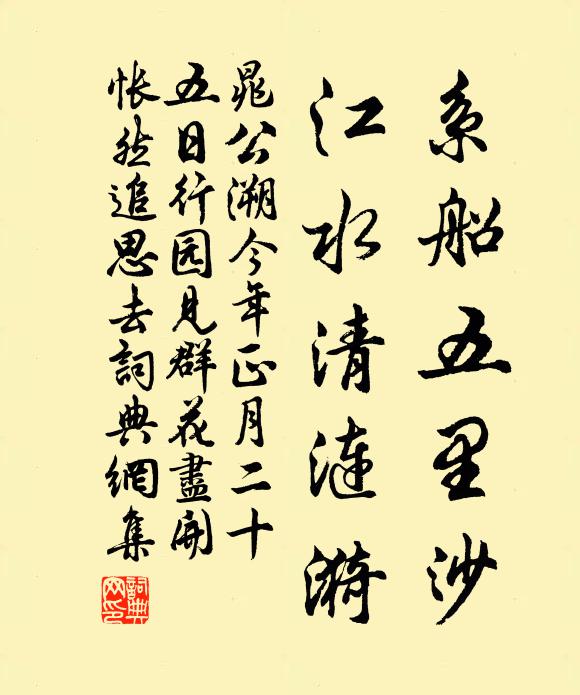 系船五里沙
江水清涟漪
晁公溯今年正月二十
五日行园见群花盡開
怅然追思去詞典網集
詞典网印